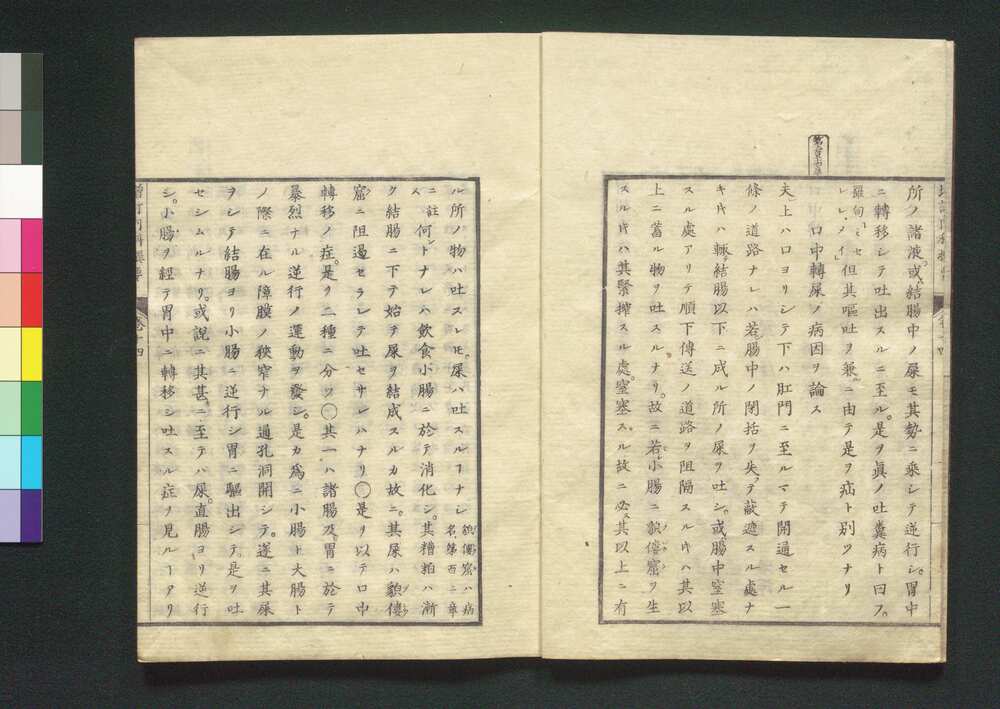 所ノ諸液或ハ結腸中ノ屎モ其勢ニ乘シテ逆行シ。胃中
ニ轉移シテ吐出スルニ至ル。是ヲ眞ノ吐糞病ト曰フ。
羅甸ミセ
レレ、メイ
但其嘔吐ヲ兼ニ由テ是ヲ疝ト別ツナリ
口中轉屎ノ病因ヲ論ス
夫上ハ口ヨリシテ下ハ肛門ニ至ルマテ開通セル一
條ノ道路ナレハ若腸中ノ閉括ヲ失テ蔽遮スル處ナ
キ𪜈ハ輙結腸以下ニ成ル所ノ屎ヲ吐シ。或腸中窒塞
スル處アリテ順下傳送ノ道路ヲ阻隔スル𪜈ハ其以
上ニ蓄ル物ヲ吐スルナリ。故ニ若小腸ニ㒵僂窟ヲ生
スル𪜈ハ其緊搾スル處。窒塞スル故ニ必其以上ニ有
ル所ノ物ハ吐スレ𪜈。屎ハ吐スルヿナシ
㒵僂窟ハ病
名第百二章
ニ註
ス
何トナレハ飲食小腸ニ於テ消化シ。其糟粕ハ漸
ク結腸ニ下テ始テ屎ヲ結成スルカ故ニ。其屎ハ㒵僂
窟ニ阻遏セラレテ吐セサレハナリ〇是ヲ以テ口中
轉移ノ症。是ヲ二種ニ分ツ〇其一ハ諸腸及胃ニ於テ
暴烈ナル逆行ノ運動ヲ發シ。是カ爲ニ小腸ト大腸ト
ノ際ニ在ル障膜ノ狹窄ナル通孔洞開シテ。遂ニ其屎
ヲシテ結腸ヨリ小腸ニ逆行シ胃ニ驅出シテ。是ヲ吐
セシムルナリ。或說ニ其甚ニ至テハ屎。直腸ヨリ逆行
シ。小腸ヲ經テ胃中ニ轉移シ吐スル症ヲ見ルヿアリ